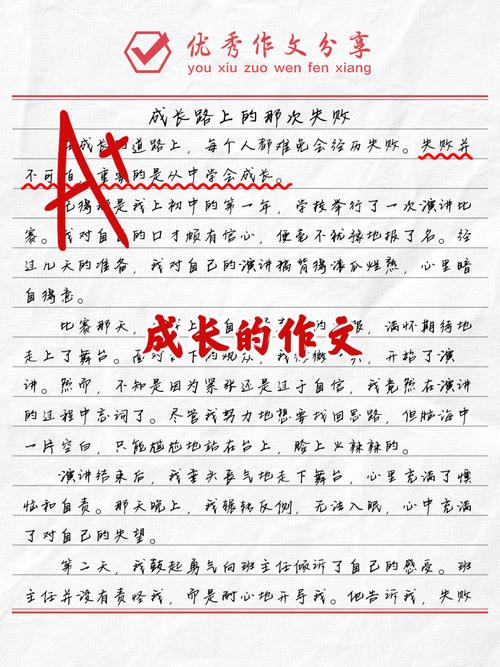 优秀作文分享
you xiu zuo wen fen xiang
A+
成长路上的那次失败
成长 道路上，每个人都难免会经历失败。失败并
不可怕，重要的是从中学会成长。
记得那是我上初中的第一年，学校举行了一次演讲比
赛。我对自己的口才颇有信心，便毫不犹豫地报了名。经
过几天的准备，我对自己的演讲稿背得滚瓜烂熟，心里暗
自得意。
比赛那天， 上 自 服，满怀期待地
成长的作文
走上了舞台。面对台下的观众，我 ，开始了演
讲。然而，不知是因为紧张还是过于自信，我竟然在演讲
的过程中忘词了。尽管我努力地想要找回思路，但脑海中
一片空白，只能尴尬地站在台上，脸上火辣辣的。
演讲结束后，我垂头丧气地走下舞台，心里充满了懊
恼和自责。那天晚上，我辗转反侧，无法入眠，心中充满
了对自己的失望。
第二天，我鼓起勇气向班主任倾诉了自己的感受。班
主任并没有责怪我，而是耐心地开导我。他告诉我，失败